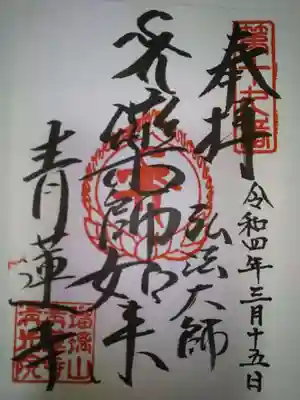 奉拝
令和四年三月十五日
弘法大師
薬師如来
青蓮寺